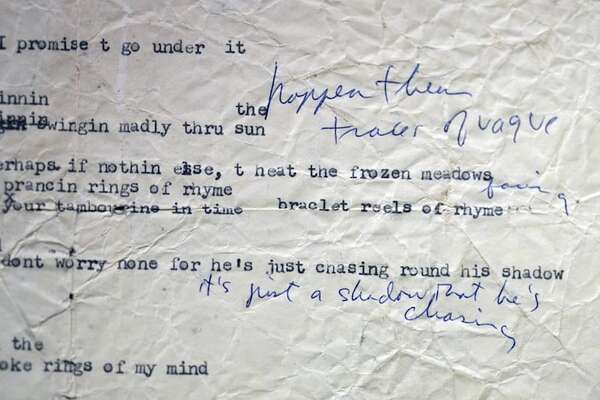 I promise t go under it
happen then
innin
the
innin
swingin madly thru sun
traces of vague
erhaps if nothin else, t heat the frozen meadows
prancin rings of rhyme
your tambourine in time braclet reels of rhyme
dont worry none for he's just chasing round his shadow
it's just a shadow that he's
chasing
the
oke rings of my mind